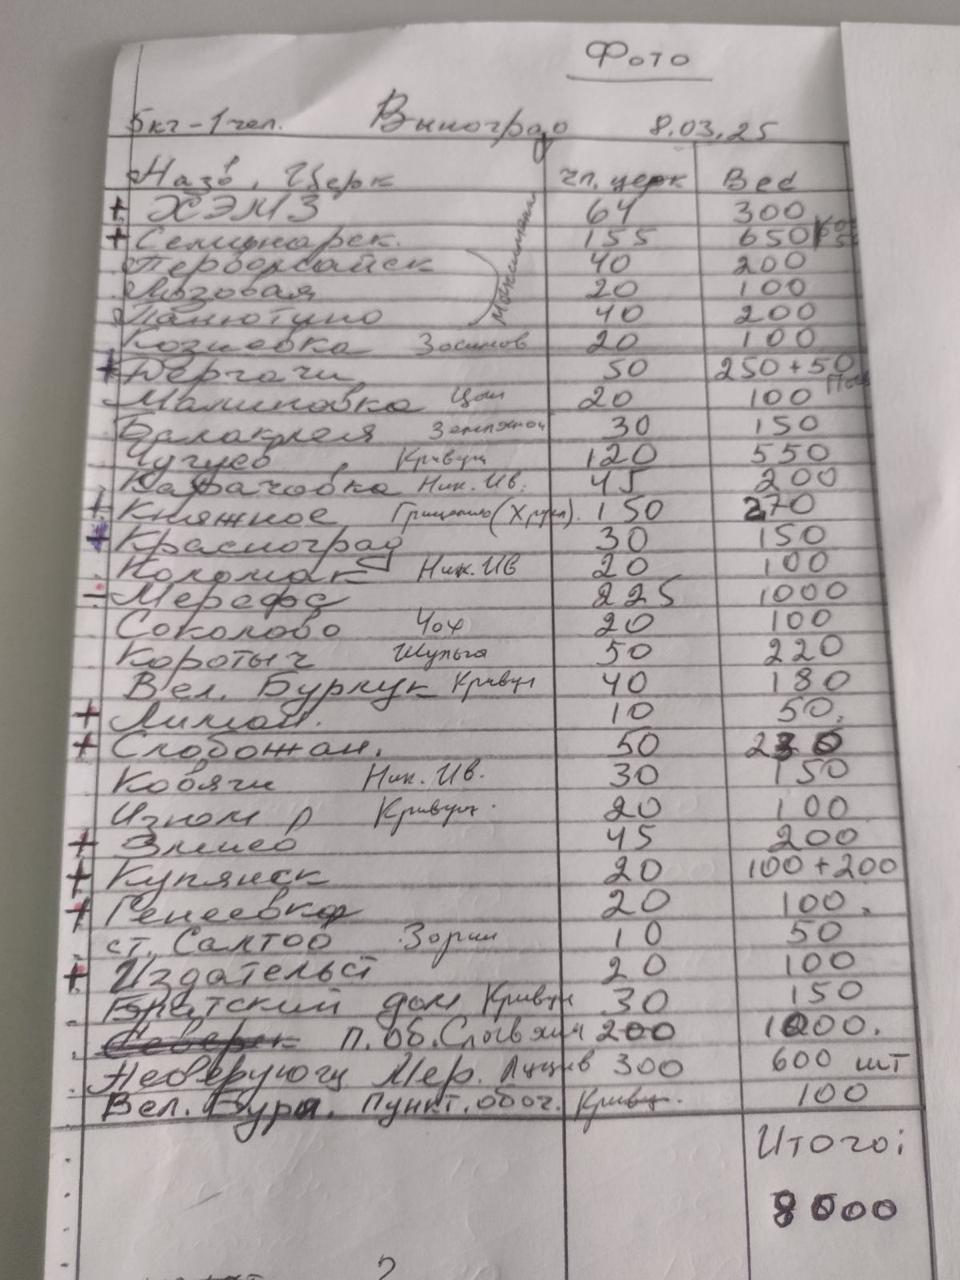 Фото
5кг-1чел. Виноград 8.03.25
Назв. Церк чл. церк Вес
+ ХЭМЗ 64 300
+ Семинарск. 155 650
Первомайск 40 200
Лозовая 20 100
Панютино 40 200
Козиевка Зосимов 20 100
+ Дергачи 50 250+50
Малиновка Цои 20 100
Балаклея 30 150
Чугуев Кривун 120 550
Карачовка Ник. Ив. 45 200
+ Княжное Гриценко 150 270
+ Красноград 30 150
Коломак Ник. Ив 20 100
Мерефа 225 1000
Соколово Чох 20 100
Коротыч Шульга 50 220
Вел. Бурлук Кривун 40 180
+ Лиман. 10 50.
+ Слобожан. 50
Ковяги Ник. Ив. 30 150
Изюм Кривун. 20 100
+ Змиев 45 200
+ Купянск 20 100+200
+ Генеевка 20 100.
ст. Салтов Зорин 10 50
+ Издательст 20 100
Братский дом Кривун 30 150
п. об. 200 1000.
Неверующ Мер. 300 600 шт
Вел. Бурл. Пункт. обог. Кривун. 100
Итого:
8000